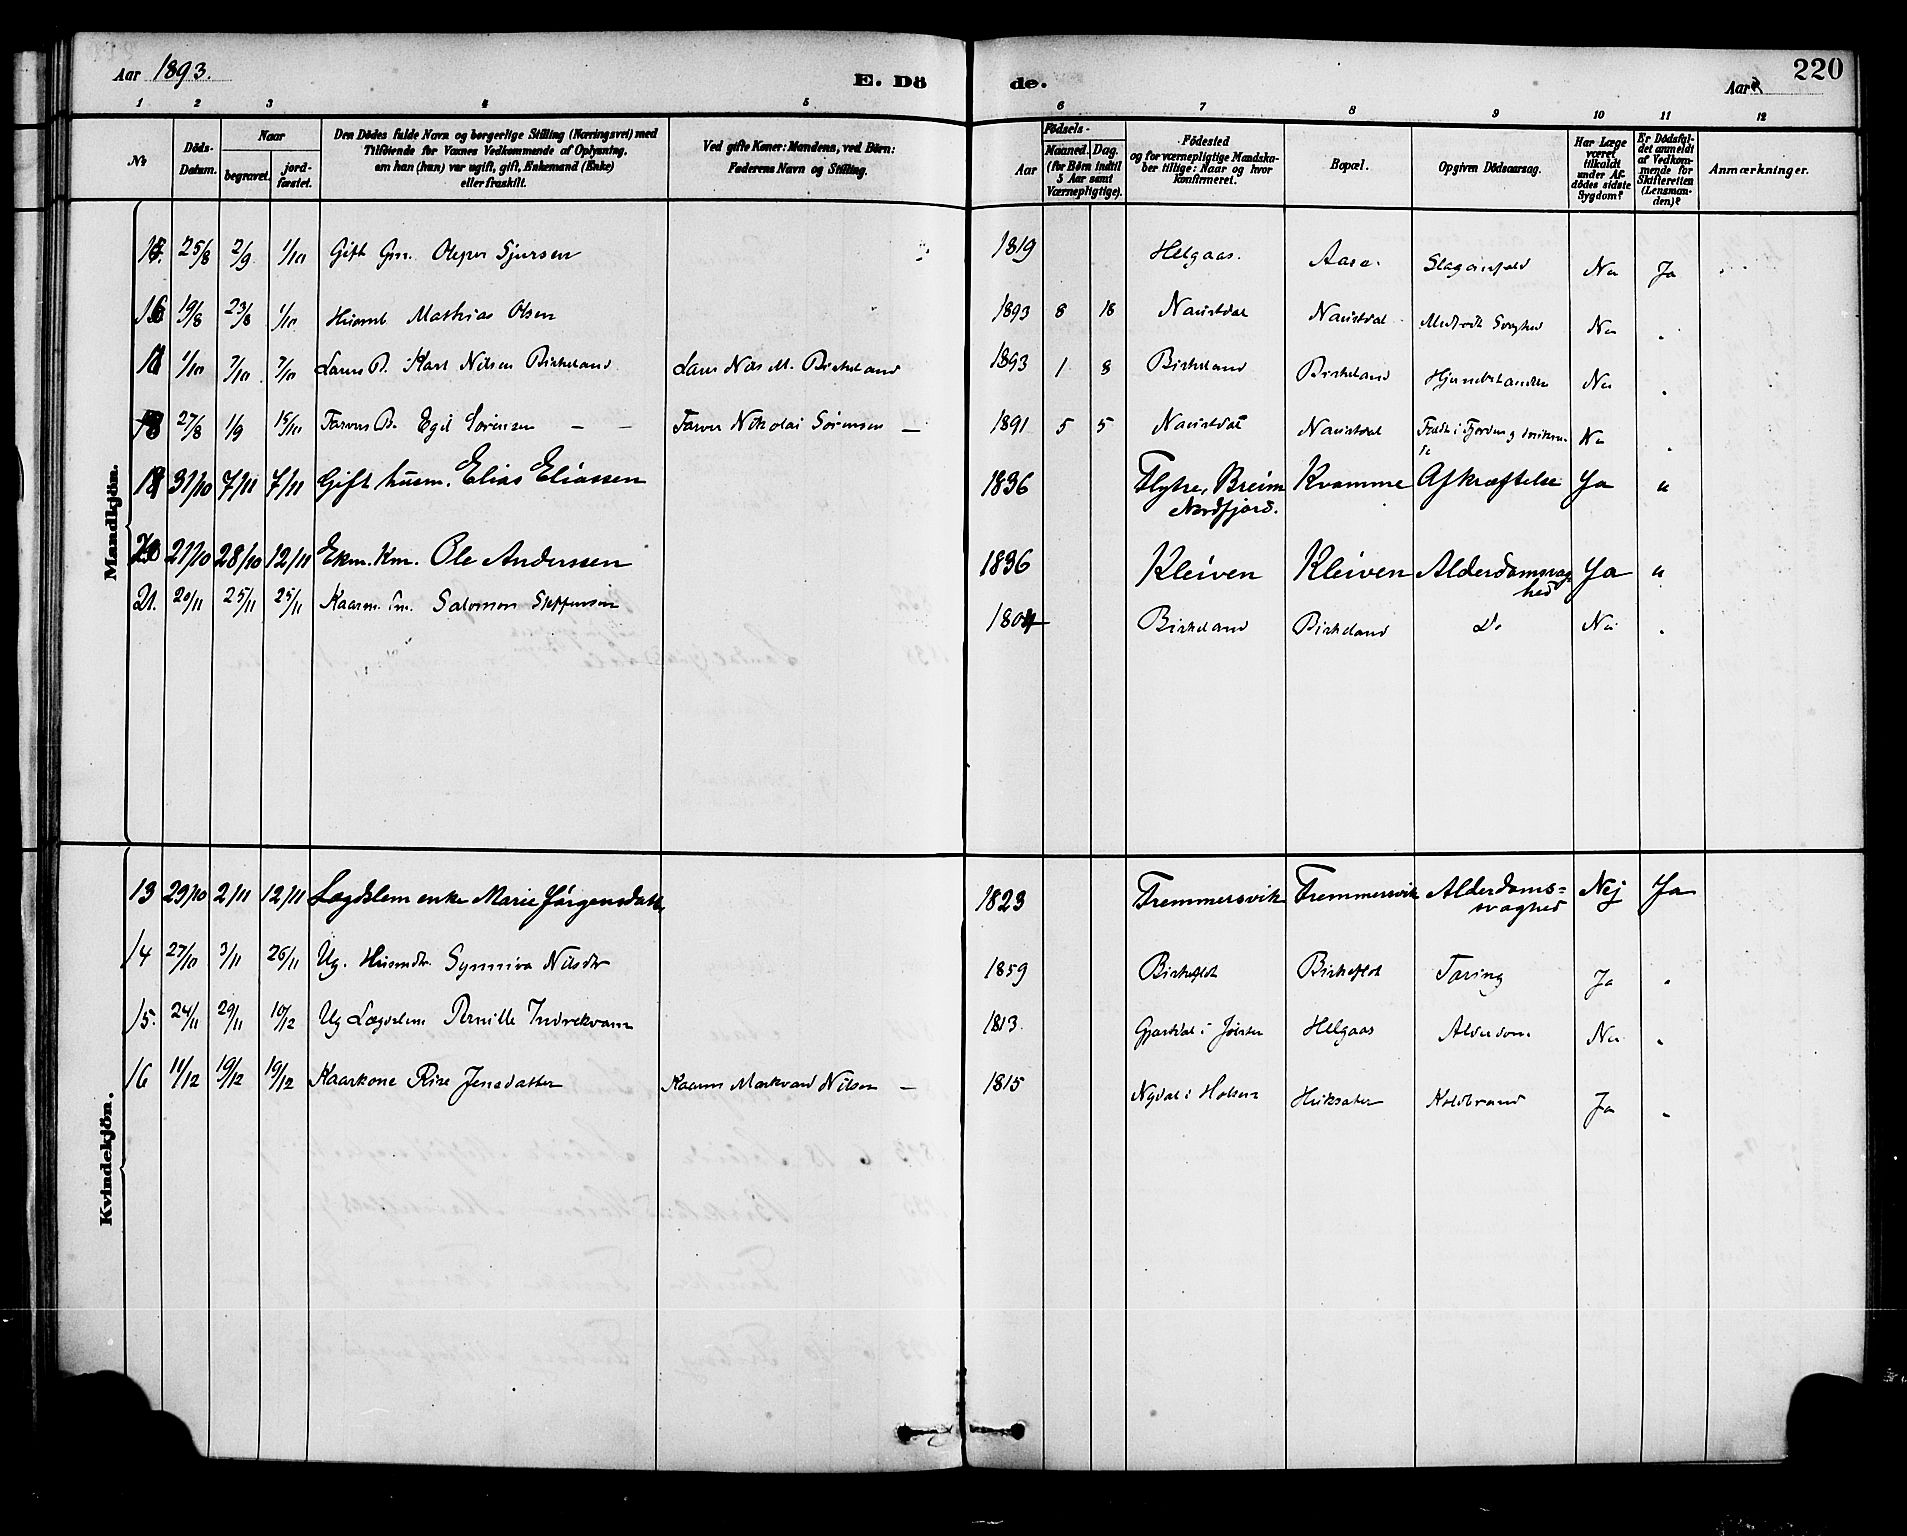 Aar 1893.
E. Dö
de.
Aar
220
1 2 3 4 5 6 7 8 9 10 11 12
No
Döds-Datum.
Naar
begravet.
jord-fæstet.
Den Dödes fulde Navn og borgerlige Stilling (Næringsvei) med
Tilföiende for Voxnes Vedkommende af Oplysning,
om han (hun) var ugift, gift, Enkemand (Enke)
eller fraskilt.
Ved gifte Koner: Mandens, ved Börn:
Faderens Navn og Stilling.
Födsels-
Aar
Maaned. Dag.
(for Börn indtil
5 Aar samt
Værnepligtige).
Födested
og for værnepligtige Mandska-
ber tillige: Naar og hvor
konfirmeret.
Bopæl.
Opgiven Dödsaarsag.
Har Læge
været
tilkaldt
under Af-
dödes sidste
Sygdom?
Er Dödsfal-
det anmeldt
af Vedkom-
mende for
Skifteretten
(Lensman-
den)?
Anmærkninger.
Mandkjön.
15. 25/8 2/9 1/10 Gift Gm. Sjursen 1819 Helgaas. Aase. Ja
16 19/8 23/8 1/10 Mathias Olsen 1893 8 18 Naustdal Naustdal
1/10 7/10 7/10 Karl Nilsen Birkeland M. Birkeland 1893 1 8 Birkeland Birkeland
18 27/8 1/9 15/10 Egil Sörensen — — Farver Nikolai Sörensen — 1891 5 5 Naustdal Naustdal
31/10 7/11 7/11 Gift husm. Elias Eliassen 1836 Flytre, Breim Nordfjord. Kvamme Afkræftelse Ja "
20 21/10 28/10 12/11 Ekm. Km. Ole Anderssen 1836 Kleiven Kleiven Alderdomssvaghed Ja "
21. 20/11 25/11 25/11 Kaarm. Salomon Steffenson 1804 Birkeland Birkeland Do
Kvindekjön.
13 29/10 2/11 12/11 Lægdslem enke Marie Jörgensdatt. 1823 Fremmersvik Fremmersvik Alderdoms=svaghed Nej Ja
14 27/10 3/11 26/11 Ug. Husmdtr. Synneva Nilsdtr 1859 Birkeflot Birkeflot Tæring Ja "
15. 24/11 29/11 10/12 Ug Lægdslem Pernille Indrekvam 1813 i Jölster Helgaas Alderdom "
16 11/12 19/12 19/12 Kaarkone Jensdatter Kaarm Markvard Nilsen — 1815 Nydal i Holsen Koldbrand Ja "